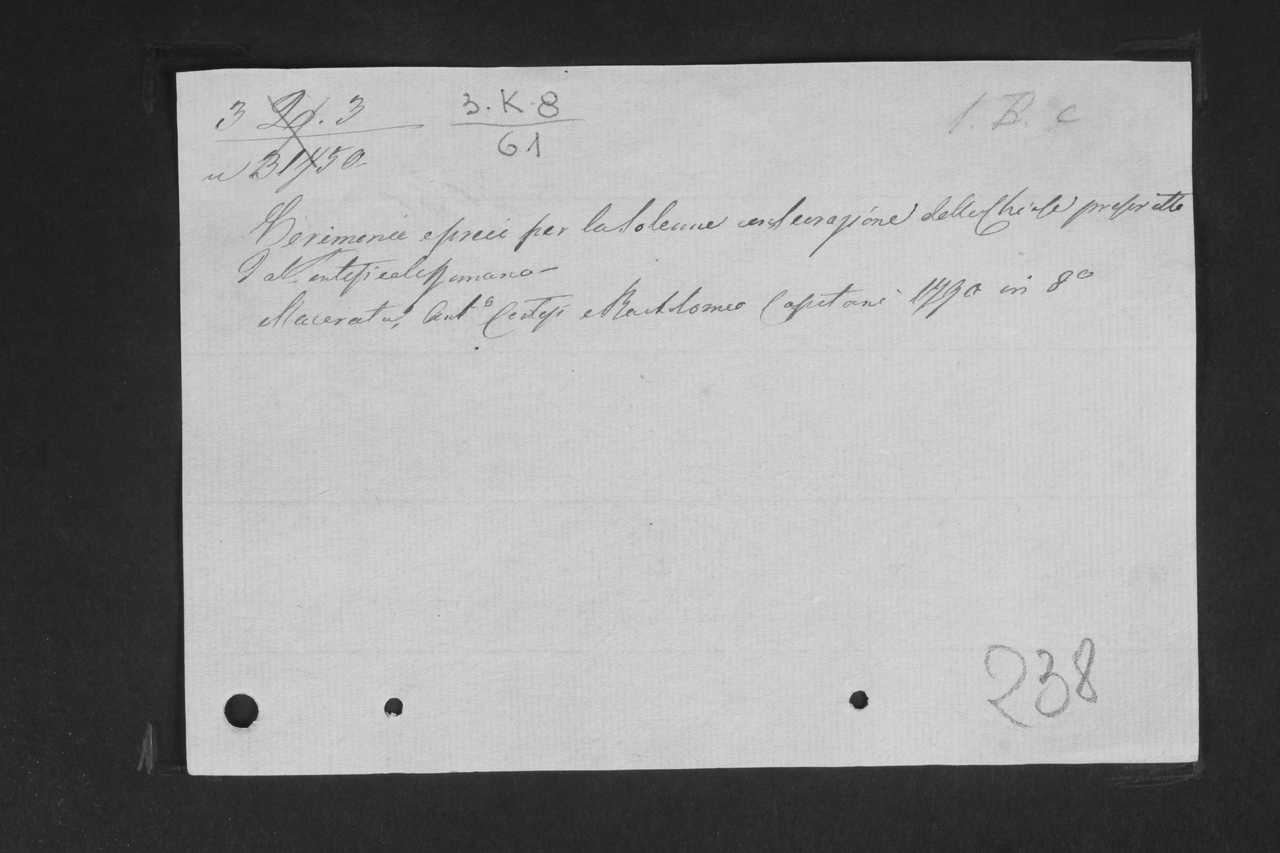 3 Q. 3
3.K.8
1. B. c
n 31450
61
Cerimonie e preci per la solenne consecrazione delle Chiese prescritte
dal Pontificale Romano
Macerata, Ant.o Cortesi e Bartolomeo Capitani 1790 in 8o
238